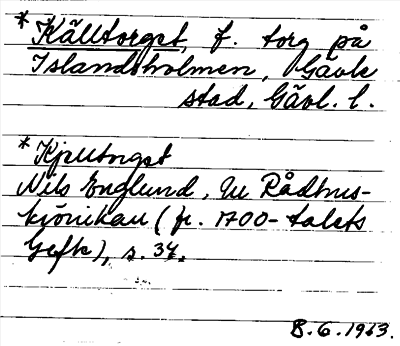 * Källtorget, f. torg på
Islandsholmen, Gävle
stad, Gävl. l.
* Kjelltorget
Nils Englund, Ur Rådhus-
krönikan (fr. 1700-talets
Gefle), s. 34.
8.6.1963.